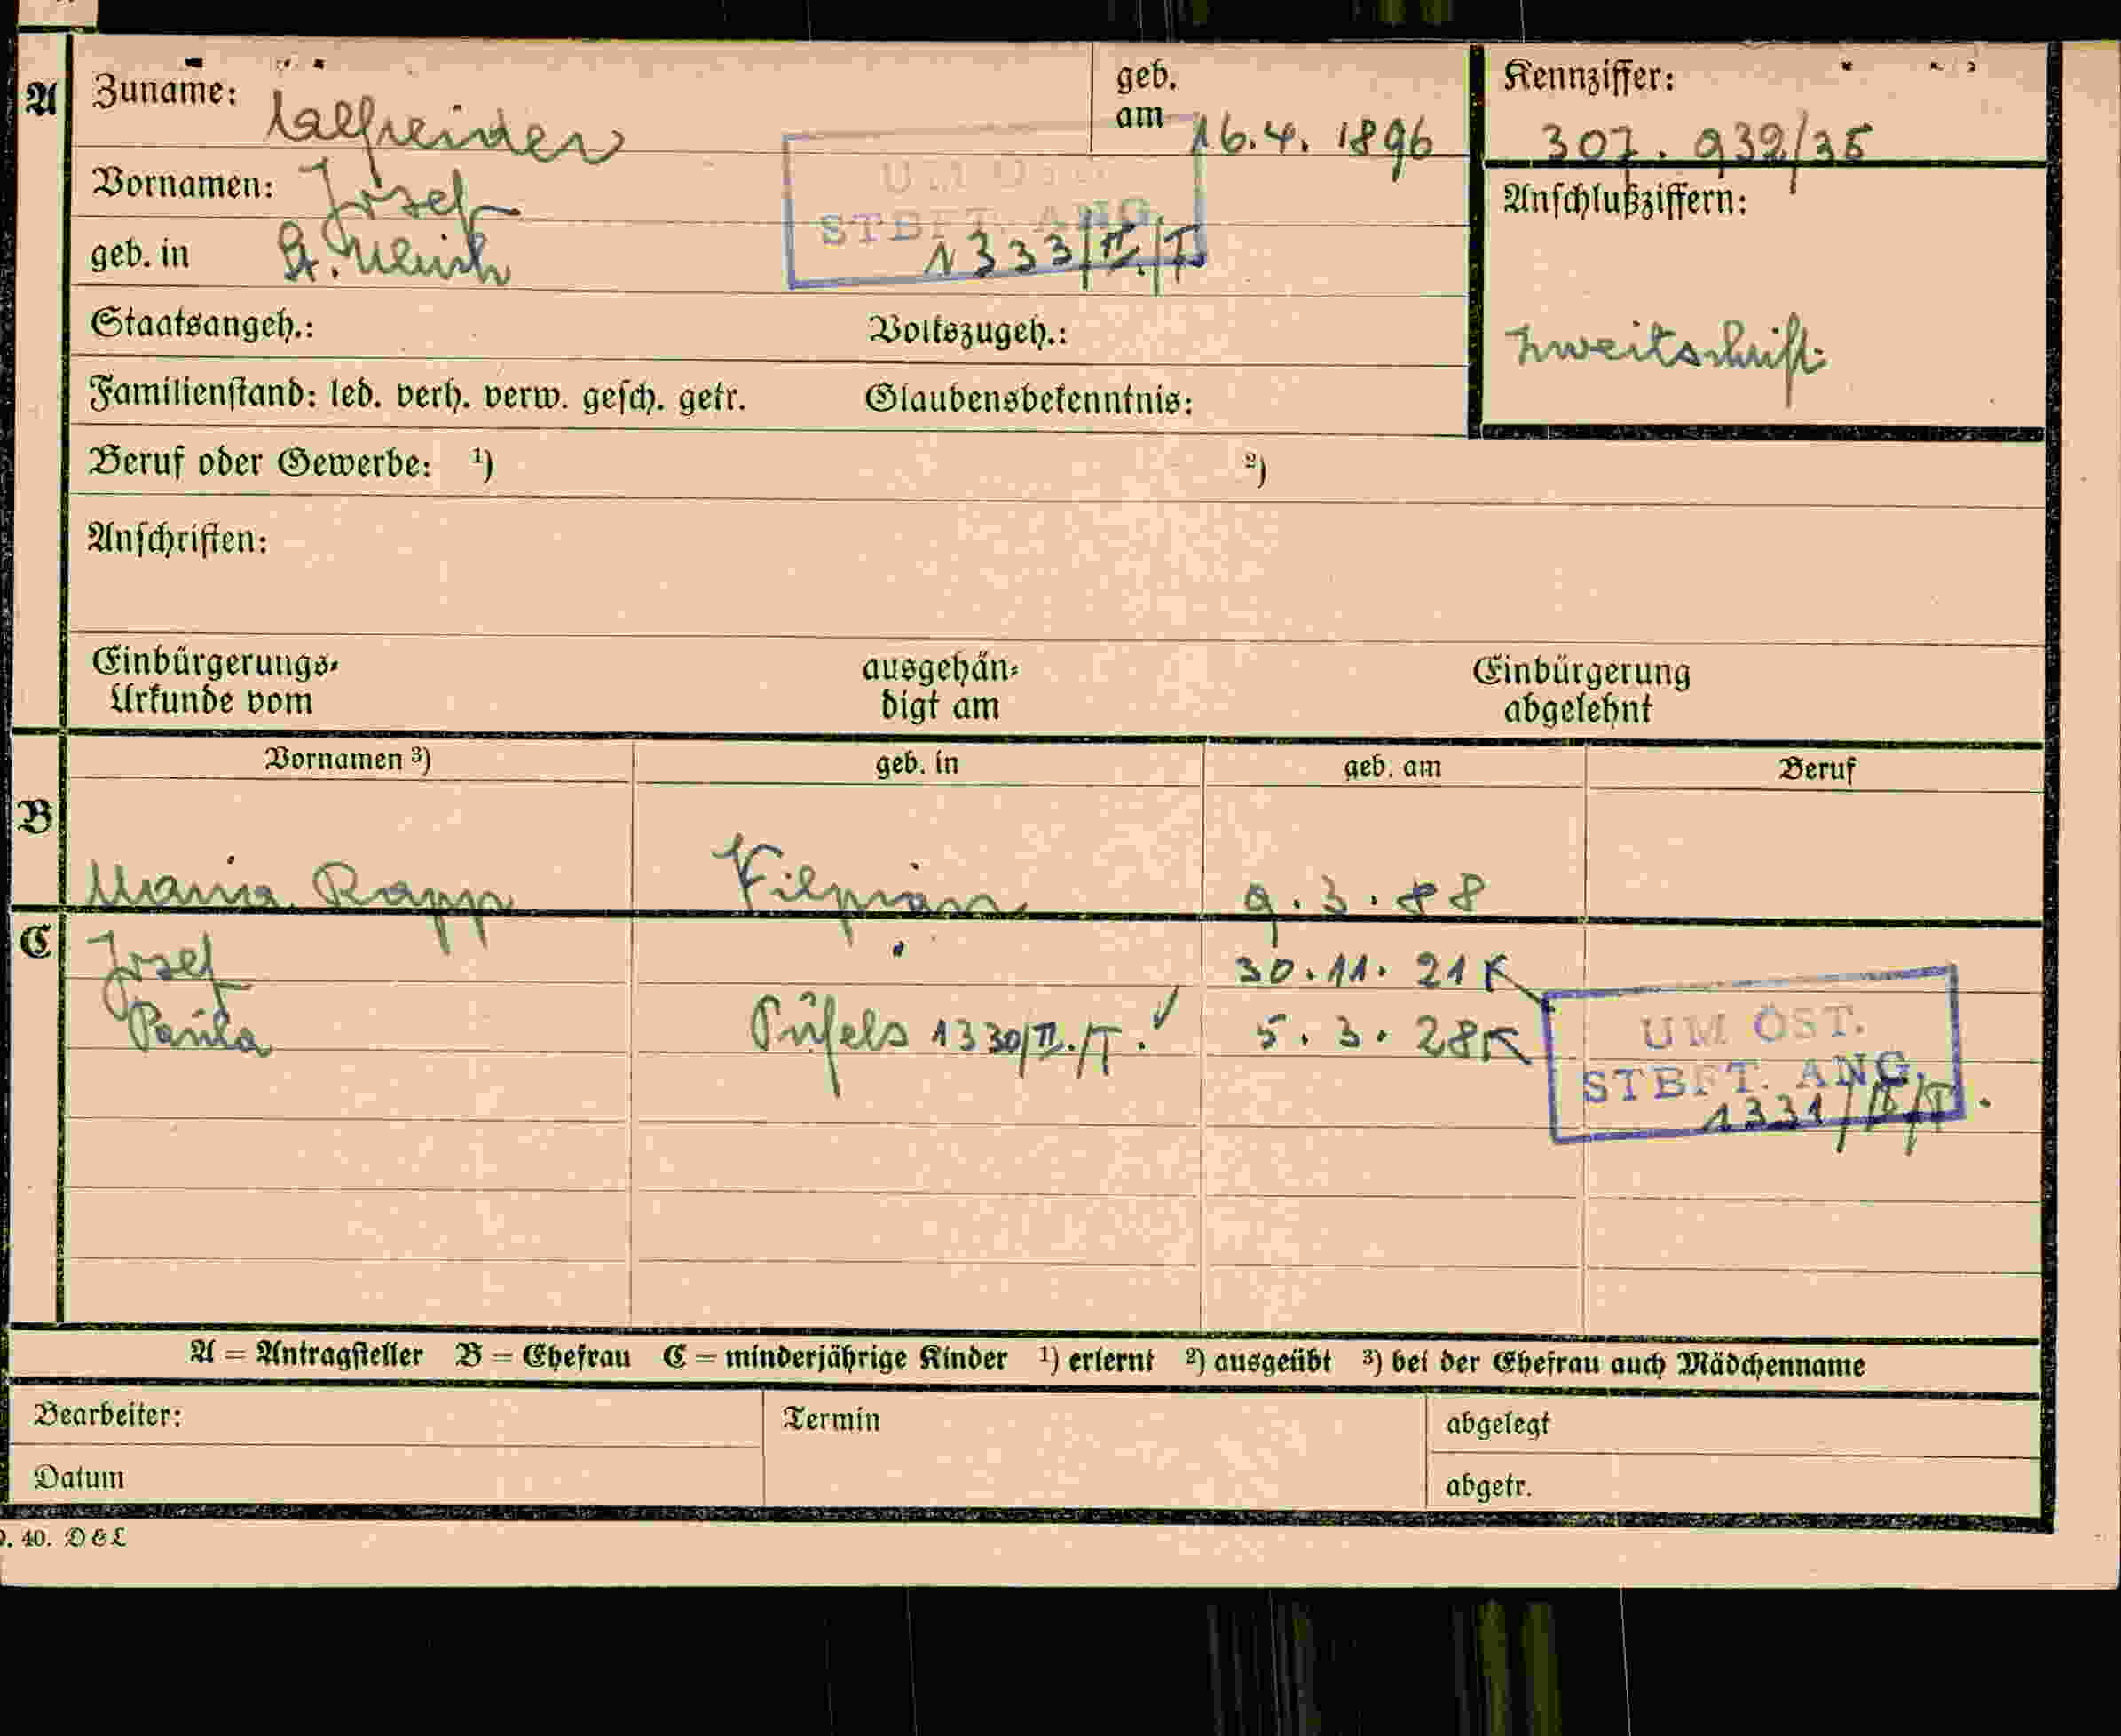 A
Zuname:
geb. am 16.4. 1896
Kennziffer:
307. 939/35
Vornamen: Josef
UM ÖST.
STBFT. ANG.
1333/II./T
Anschlußziffern:
geb. in St. Ulrich
Zweitschrift
Staatsangeh.:
Volkszugeh.:
Familienstand: led. verh. verw. gesch. getr.
Glaubensbekenntnis:
Beruf oder Gewerbe: 1)
2)
Anschriften:
Einbürgerungs-
Urkunde vom
ausgehän-
digt am
Einbürgerung
abgelehnt
Vornamen 3)
geb. in
geb. am
Beruf
B
Maria Rapp
9.3.88
C
Josef
"
30.11. 21 K
Paula
Pufels 1330/II./T.
5.3.28 K
UM ÖST.
STBFT. ANG.
1331/II/T.
A = Antragsteller B = Ehefrau C = minderjährige Kinder 1) erlernt 2) ausgeübt 3) bei der Ehefrau auch Mädchenname
Bearbeiter:
Termin
abgelegt
Datum
abgetr.
40. D & L